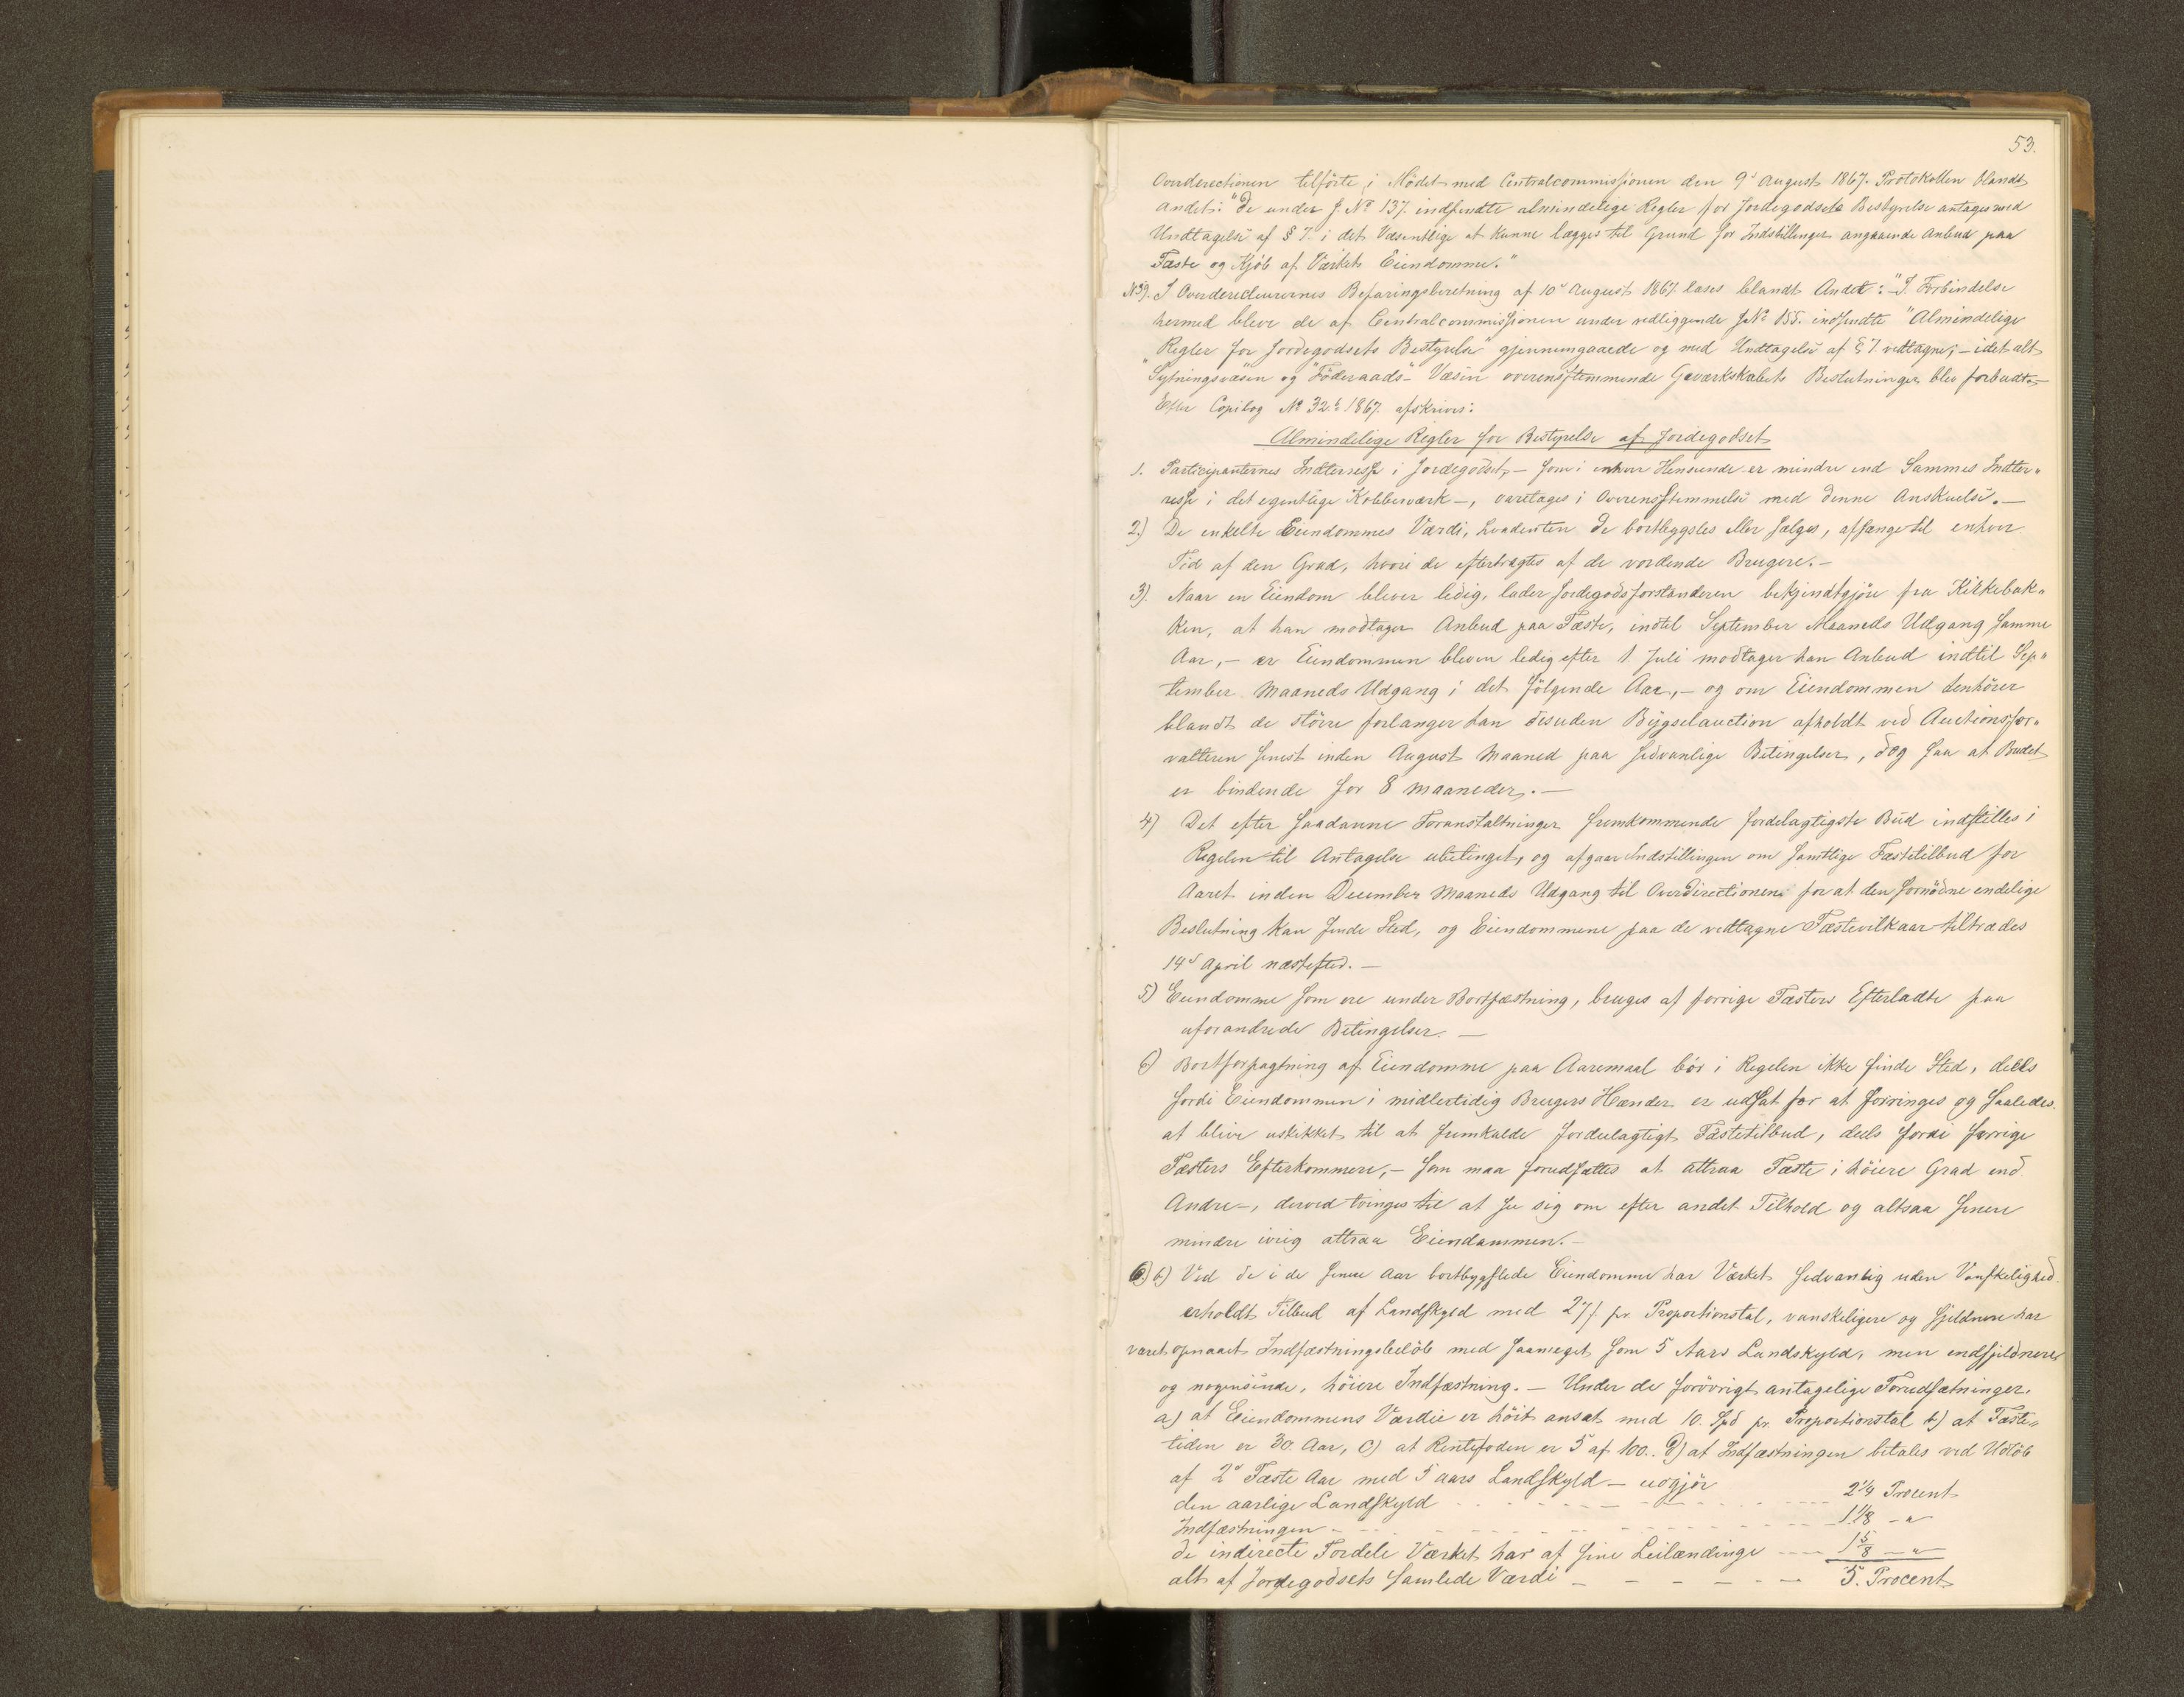 53.
Overdirectionen tilförte i Mödet med Centralcommissionen den 9de August 1867. Protokollen blandt
andet: "De under J. No 137. indsendte almindelige Regler for Jordegodsets Bestyrelse antages med
Undtagelse af § 7. i det Væsentlige at kunne lægges til Grund for Indstillinger angaaende Anbud paa
Fæste og Kjöb af Værkets Eiendomme."
No 39. I Overdirecteurernes Befaringsberetning af 10de August 1867 læses blandt Andet: "I Forbindelse
hermed bleve de af Centralcommissionen under vedliggende J.No 155. indsendte "Almindelige
"Regler for Jordegodsets Bestyrelse" gjennemgaaede og med Undtagelse af § 7 vedtagne; – idet alt
"Sytningsvæsen og "Föderaads"- Væsen overensstemmende Geværkskabets Beslutninger blev forbudt. –
Efter Copibog No 32. 1867. afskrives:
Almindelige Regler for Bestyrelse af Jordegodset
1. Participanternes Indteresse i Jordegodset, – som i enhver Henseende er mindre end Sammes Indter-
resse i det egentlige Kobberværk –, varetages i Overensstemmelse med denne Anskuelse. –
2.) De enkelte Eiendommes Værdi, hvadenten de bortbygsles eller sælges, afhænge til enhver
Tid af den Grad, hvori de eftertragtes af de vordende Brugere. –
3). Naar en Eiendom bliver ledig, lader Jordegodsforstanderen bekjendtgjöre fra Kirkebak-
ken, at han modtager Anbud paa Fæste, indtil September Maaneds Udgang samme
Aar, – er Eiendommen bleven ledig efter 1. Juli modtager han Anbud indtil Sep-
tember Maaneds Udgang i det fölgende Aar, – og om Eiendommen henhörer
blandt de större forlanger han desuden Bygselauction afholdt ved Auctionsfor-
valteren senest inden August Maaned paa sedvanlige Betingelser, dog saa at Budet
er bindende for 8 Maaneder. –
4) Det efter saadanne Foranstaltninger fremkommende fordelagtigste Bud indstilles i
Regelen til Antagelse ubetinget, og afgaar Indstillingen om samtlige Fæstetilbud for
Aaret inden December Maaneds Udgang til Overdirectionen for at den fornödne endelige
Beslutning kan finde Sted, og Eiendommene paa de vedtagne Fæstevilkaar tiltrædes
14de April næstefter. –
5) Eiendomme som ere under Bortfæstning, bruges af forrige Fæsters Efterladte paa
uforandrede Betingelser. –
6) Bortforpagtning af Eiendomme paa Aaremaal bör i Regelen ikke finde Sted, deels
fordi Eiendommen i midlertidig Brugers Hænder er udsat for at forringes og saaledes
at blive uskikket til at fremkalde fordeelagtigt Fæstetilbud, deels fordi forrige
Fæsters Efterkommere, – som maa forudsættes at attraa Fæste i höiere Grad end
Andre –, derved tvinges til at see sig om efter andet Tilhold og altsaa senere
mindre ivrig attraa Eiendommen. –
6.) b) Ved de i de senere Aar bortbygslede Eiendomme har Værket sedvanlig uden Vanskelighed
erholdt Tilbud af Landskyld med 27 s. pr. Proportionstal, vanskeligere og sjeldnere har
været opnaaet Indfæstningsbelöb med saameget som 5 Aars Landskyld, men endsjeldnere
og nogensinde, höiere Indfæstning. – Under de forövrigt antagelige Forudsætninger,
a) at Eiendommens Værdie er höit ansat med 10. Spd pr. Proportionstal b) at Fæste-
tiden er 30. Aar, c) at Rentefoden er 5 af 100.. d) at Indfæstningen betales ved Udlöb
af 2det Fæste Aar med 5 Aars Landskyld – udgjör
den aarlige Landskyld - - - 2 1/4 Procent
Indfæstningen - - - 1 1/8 – "
de indirecte Fordele Værket har af sine Leilændinge - - - 1 5/8 – "
alt af Jordegodsets samlede Værdi - - - 5. Procent